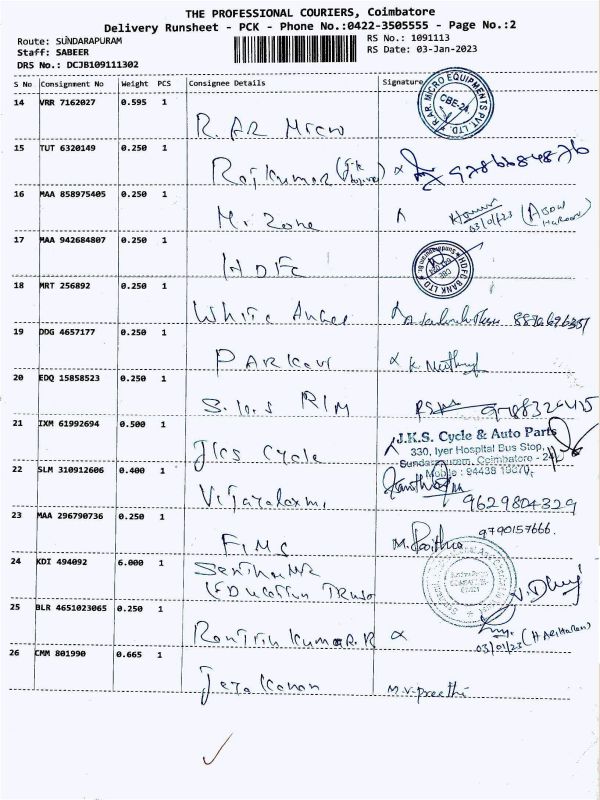 THE PROFESSIONAL COURIERS, Coimbatore
Delivery Runsheet - PCK - Phone No.:0422-3505555 - Page No.:2
Route: SUNDARAPURAM
Staff: SABEER
DRS No.: DCJB109111302
RS No.: 1091113
RS Date: 03-Jan-2023
S No Consignment No Weight PCS Consignee Details Signature
14 VRR 7162027 0.595 1 R. AR Micro
R.AR. MICRO EQUIPMENTS PVT. LTD. CBE-24
15 TUT 6320149 0.250 1 Rajkumar
16 MAA 858975405 0.250 1 Mr. Zone 03/01/23
17 MAA 942684807 0.250 1 HDFC
HDFC BANK LTD
18 MRT 256892 0.250 1 White
19 DDG 4657177 0.250 1
20 EDQ 15858523 0.250 1
21 IXM 61992694 0.500 1 JKS Cycle
J.K.S. Cycle & Auto Parts
330, Iyer Hospital Bus Stop,
Sundarapuram, Coimbatore - 24
22 SLM 310912606 0.400 1 Vijayalaxmi 9629804329
23 MAA 296790736 0.250 1 FIMS 9790157666.
24 KDI 494092 6.000 1
Education Trust
25 BLR 4651023065 0.250 1 03/01/23 (HARIHARAN)
26 CMM 801990 0.665 1 M.V.Preethi